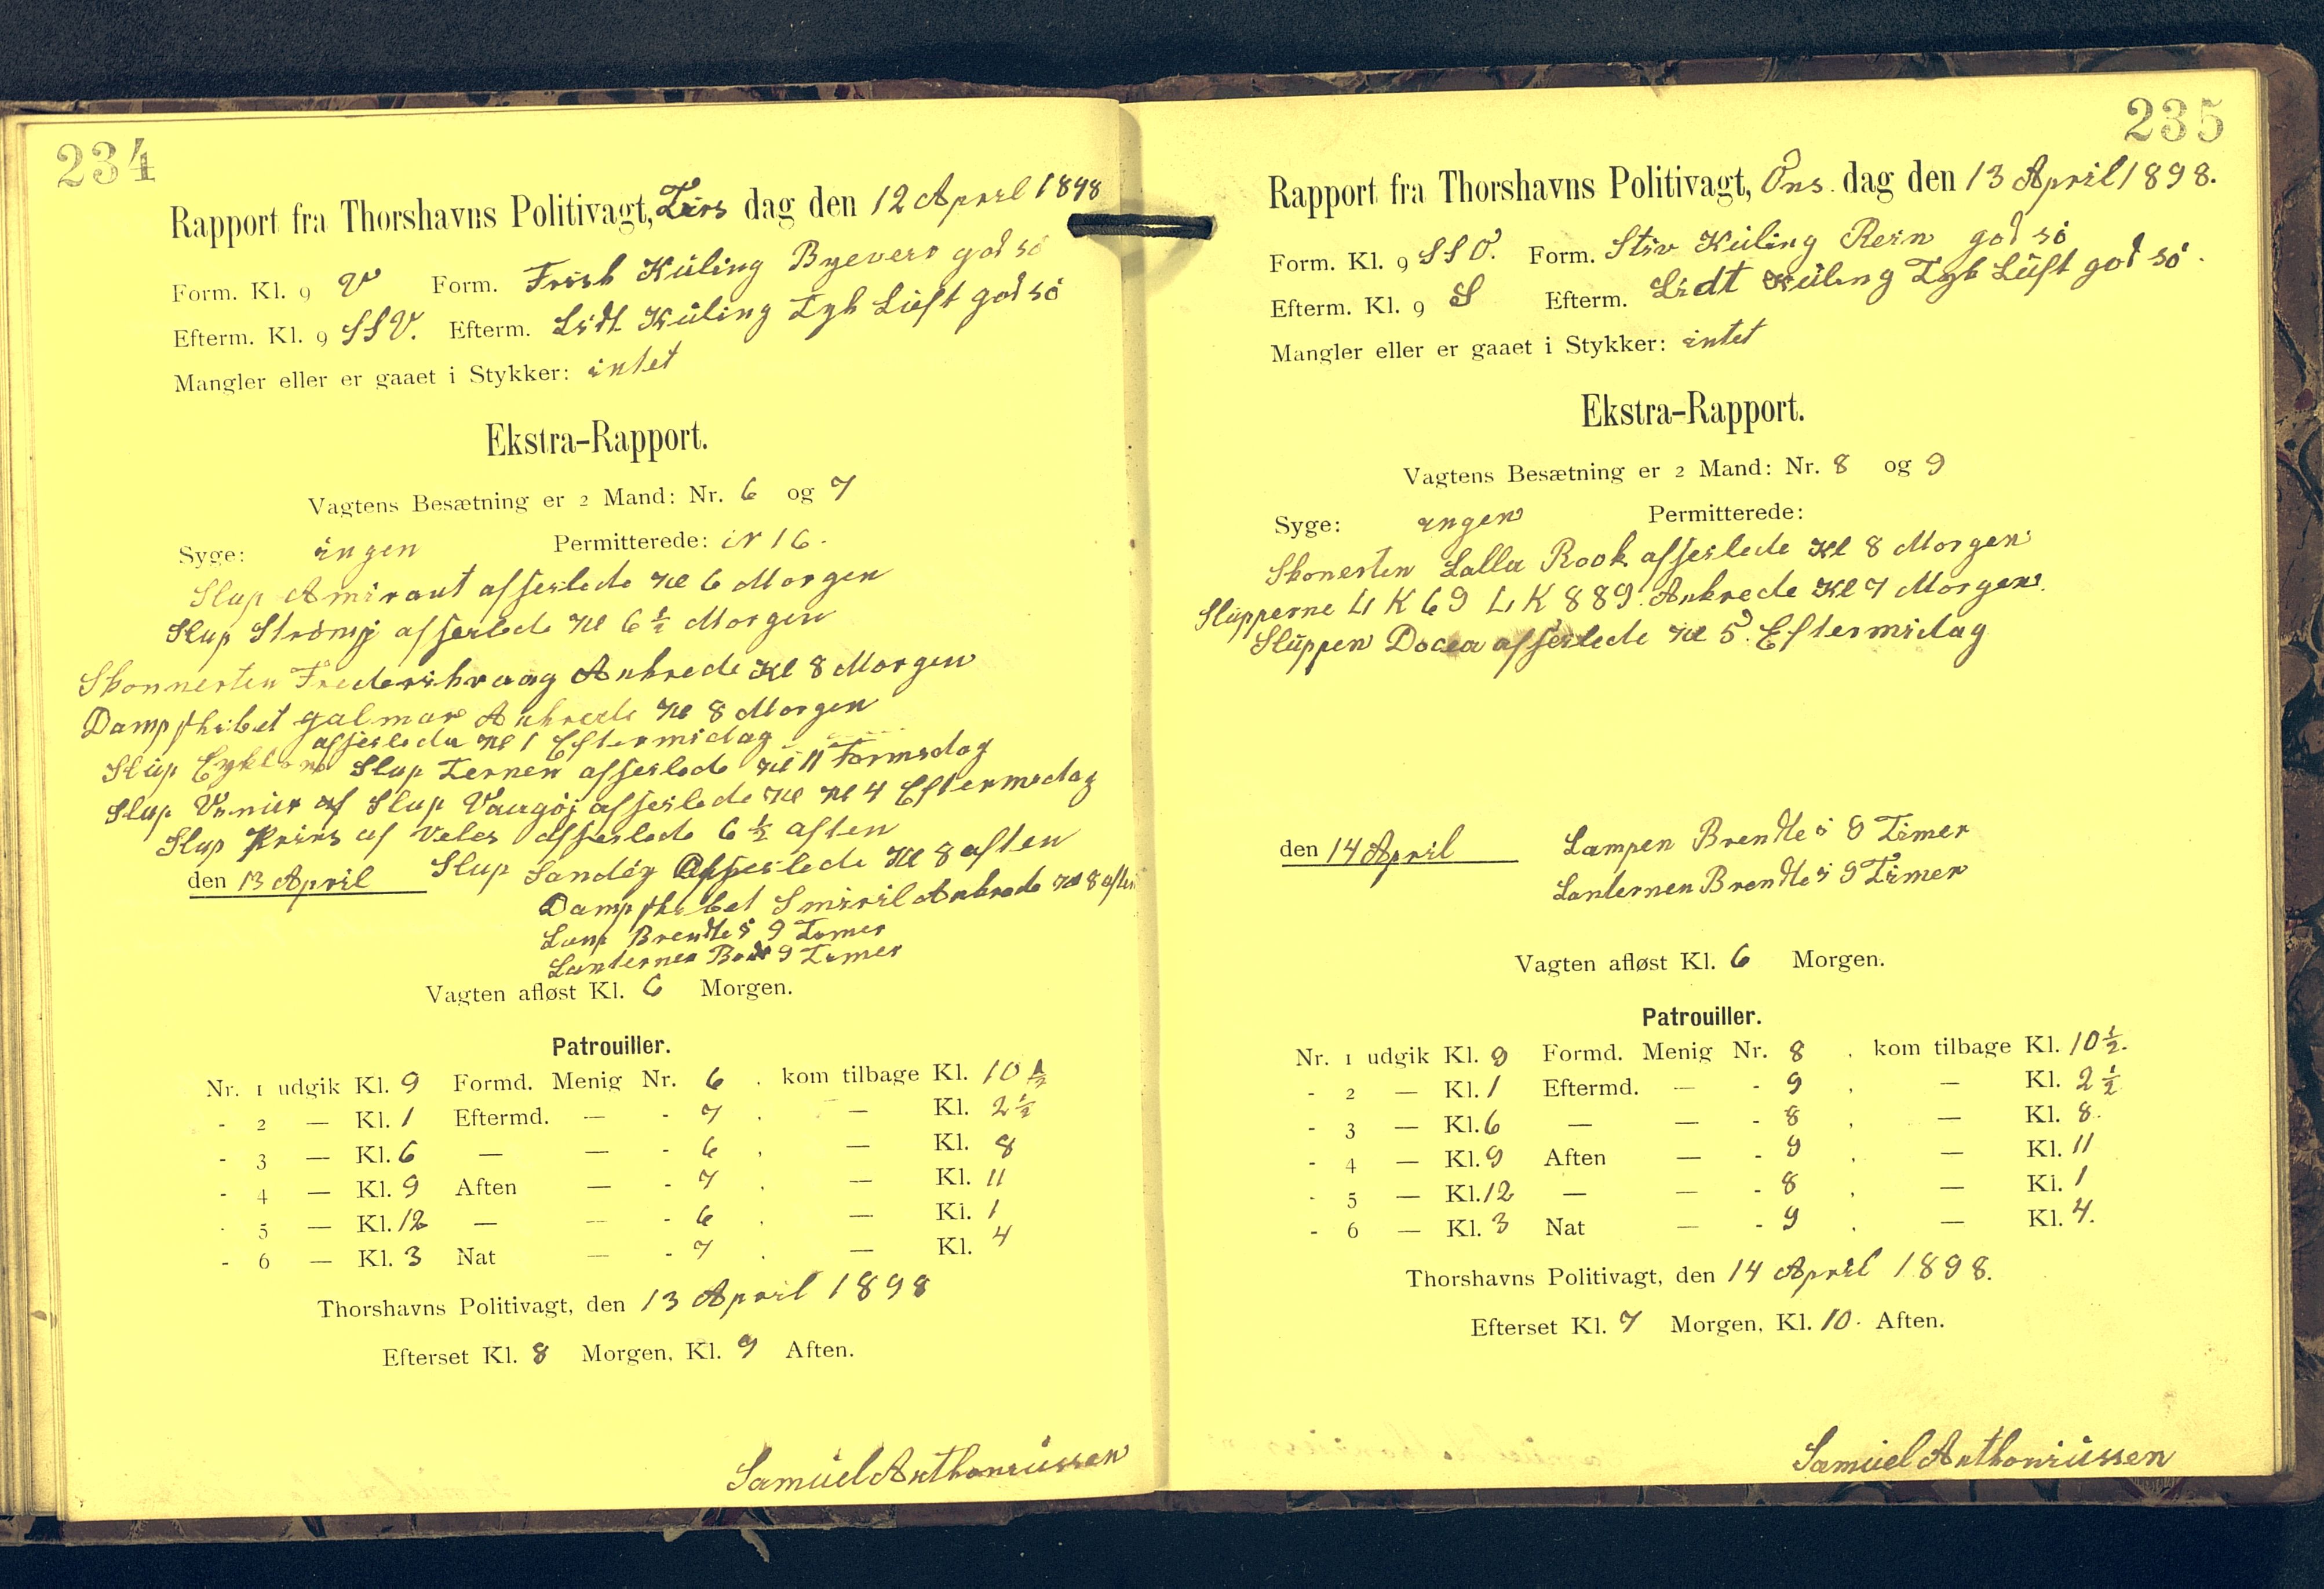 234
Rapport fra Thorshavns Politivagt, Tirs dag den 12 April 1898
Form. Kl. 9 V Form. Frisk Küling Byeveir god sö
Efterm. Kl. 9 SSV. Efterm. Lidt Küling Tyk Lüft god sö
Mangler eller er gaaet i Stykker: intet
Ekstra-Rapport.
Vagtens Besætning er 2 Mand: Nr. 6 og 7
Syge: ingen Permitterede: 16.
Slup Amirant afseilede Kl 6 Morgen
Slup Strömö afseilede Kl 6 ½ Morgen
Skonnerten Frederiksvaag Ankrede Kl 8 Morgen
Dampskibet Hjalmar Ankrede Kl 8 Morgen
afseilede Kl 1 Eftermidag
Slüp Cyklone Slup Ternen afseilede Kl 11 Formidag
Slup af Slup Vaagöj afseilede Kl Kl 4 Eftermidag
Slup Prins af Veles afseilede 6 ½ aften
den 13 April Slup Sandöy Afseilede Kl 8 aften
Dampskibet Smiril Ankrede Kl 8 aften
Lamp Brendte i 9 Timer
Lanternen 9 Timer
Vagten afløst Kl. 6 Morgen.
Patrouiller.
Nr. 1 udgik Kl. 9 Formd. Menig Nr. 6 , kom tilbage Kl. 10 ½
- 2 — Kl. 1 Eftermd. — - 7 , — Kl. 2 ½
- 3 — Kl. 6 — — - 6 , — Kl. 8
- 4 — Kl. 9 Aften — - 7 , — Kl. 11
- 5 — Kl. 12 — — - 6 , — Kl. 1
- 6 — Kl. 3 Nat — - 7 , — Kl. 4
Thorshavns Politivagt, den 13 April 1898
Efterset Kl. 8 Morgen, Kl. 9 Aften.
Samüel Anthoniüssen
235
Rapport fra Thorshavns Politivagt, Ons dag den 13 April 1898.
Form. Kl. 9 SSO. Form. Stiv Küling Rein god sö
Efterm. Kl. 9 S Efterm. Lidt Küling Tyk Lüft god sö.
Mangler eller er gaaet i Stykker: intet
Ekstra-Rapport.
Vagtens Besætning er 2 Mand: Nr. 8 og 9
Syge: ingen Permitterede:
Skonerten Lalla Rook afseilede Kl 8 Morgen
Slüpperne LK 69 LK 889. Ankrede Kl 7 Morgen.
Slüppen Docea afseilede Kl 5. Eftermidag
den 14 April Lampen Brendte i 9 Timer
Lanternen Brendte i 9 Timer
Vagten afløst Kl. 6 Morgen.
Patrouiller.
Nr. 1 udgik Kl. 9 Formd. Menig Nr. 8 , kom tilbage Kl. 10 ½.
- 2 — Kl. 1 Eftermd. — - 9 , — Kl. 2 ½
- 3 — Kl. 6 — — - 8 , — Kl. 8.
- 4 — Kl. 9 Aften — - 9 , — Kl. 11
- 5 — Kl. 12 — — - 8 , — Kl. 1
- 6 — Kl. 3 Nat — - 9 , — Kl. 4.
Thorshavns Politivagt, den 14 April 1898.
Efterset Kl. 7 Morgen, Kl. 10. Aften.
Samüel Anthoniüssen